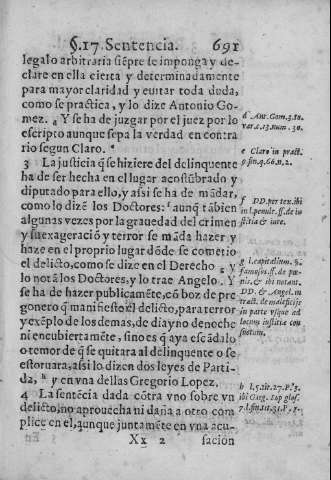 §.17. Sentencia. 691
legal o arbitraria siēpre se imponga y de-
clare en ella cierta y determinadamente
para mayor claridad y euitar toda duda,
como se practica, y lo dize Antonio Go-
mez. d Y se ha de juzgar por el juez por lo
escripto aunque sepa la verdad en contra
rio segun Claro. e
3 La justicia q̃ se hiziere del delinquente
ha de ser hecha en el lugar acostūbrado y
diputado para ello, y assi se ha de mādar,
como lo dizē los Doctores: f aunq̃ tābien
algunas vezes por la grauedad del crimen
y su exageració y terror se māda hazer y
haze en el proprio lugar dōde se cometio
el delicto, como se dize en el Derecho g y
lo notā los Doctores, y lo trae Angelo. Y
se ha de hazer publicamēte, cō boz de pre
gonero q̃ manifieste el delicto, para terror
y exēplo de los demas, de dia y no de noche
ni encubiertamēte, sino es q̃ aya escādalo
o temor de q̃ se quitara al delinquente o se
estoruara, assi lo dizen dos leyes de Parti-
da, h y en vna dellas Gregorio Lopez.
4 La sentēcia dada cōtra vno sobre vn
delicto, no aprouecha ni daña a otro com
plice en el, aunque juntamēte en vna acu-
Xx 2 sacion
d Ant. Gom. 3. to.
var. c. 13. num. 30.
e Claro in pract.
p. fin. q. 66. n. 2.
f DD. per tex. ibi
in l. penult. ff. de iu
stitia & iure.
g l. capitalium. §.
famosos. ff. de pœ-
nis, & ibi notant
DD. & Angel. in
tract. de maleficijs
in parte vsque ad
locum iustitiæ con
suetum.
h l. 5. tit. 27. P. 3.
ibi Greg. Lup. glos.
7. l. fin. tit. 31. P. 7.